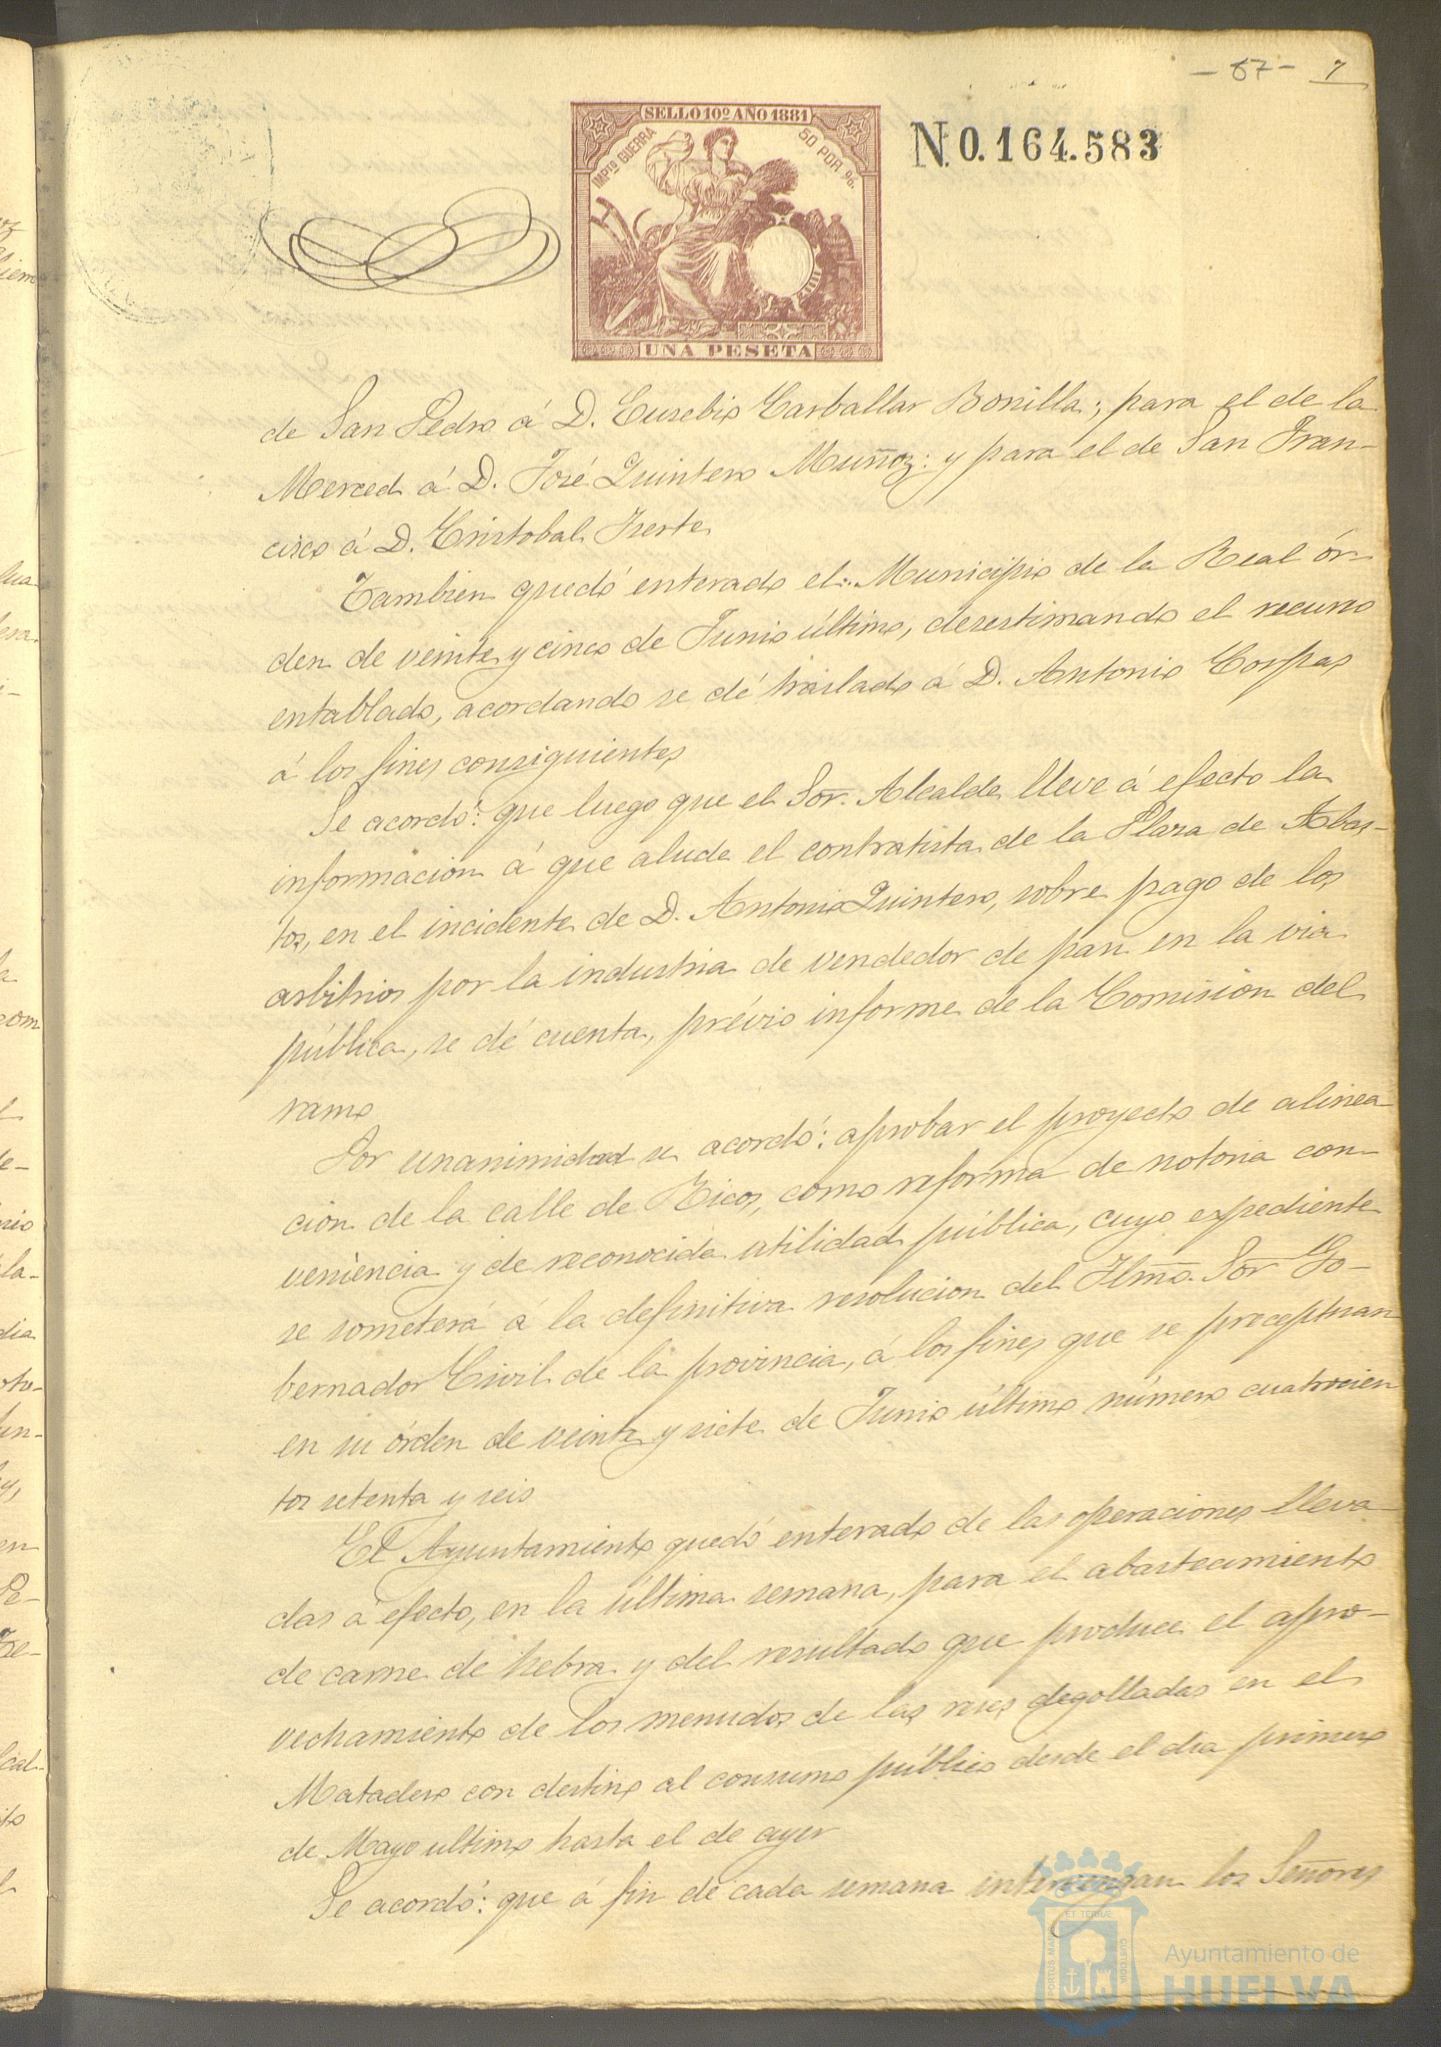 - 67 - 7
SELLO 10º AÑO 1881
IMPTO GUERRA 50 POR %.
UNA PESETA
N 0.164.583
de San Pedro á D. Eusebio Carballar Bonilla; para el de la
Merced á D. José Quintero Muñoz: y para el de San Fran-
cisco á D. Cristobal
Tambien quedó enterado el Municipio de la Real ór-
den de veinte y cinco de Junio último, desestimando el recurso
entablado, acordando se dé traslado á D. Antonio Corpas
á los fines consiguientes
Se acordó: que luego que el Sor. Alcalde lleve á efecto la
informacion á que alude el contratista de la Plaza de Abas-
tos, en el incidente de D. Antonio Quintero, sobre pago de los
arbitrios por la industria de vendedor de pan en la via
pública, se dé cuenta, prévio informe de la Comision del
ramo
Por unanimidad se acordó: aprobar el proyecto de alinea-
cion de la calle de Ricos, como reforma de notoria con-
veniencia y de reconocida utilidad pública, cuyo expediente
se someterá á la definitiva resolucion del Ilmo. Sor Go-
bernador Civil de la provincia, á los fines que se preceptuan
en su órden de veinte y siete de Junio último número cuatrocien
tos setenta y seis
El Ayuntamiento quedó enterado de las operaciones lleva-
das á efecto, en la última semana, para el abastecimiento
de carne de hebra y del resultado que produce el apro-
vechamiento de los menudos de las reses degolladas en el
Matadero con destino al consumo público desde el dia primero
de Mayo ultimo hasta el de ayer
Se acordó: que á fin de cada semana intervengan los Señores
PORTUS MARIS ET TERRAE CUSTODIA
Ayuntamiento de
HUELVA